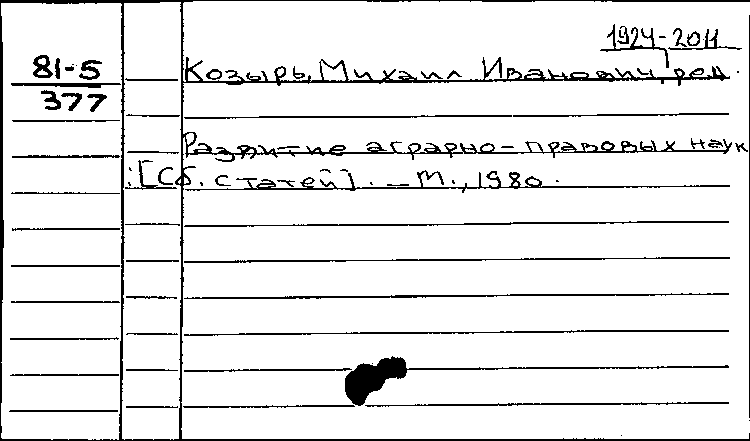 1924-2011
81-5
377
Козырь, Михаил Иванович, ред.
Развитие аграрно-правовых наук
: [Сб. статей]. – М., 1980.